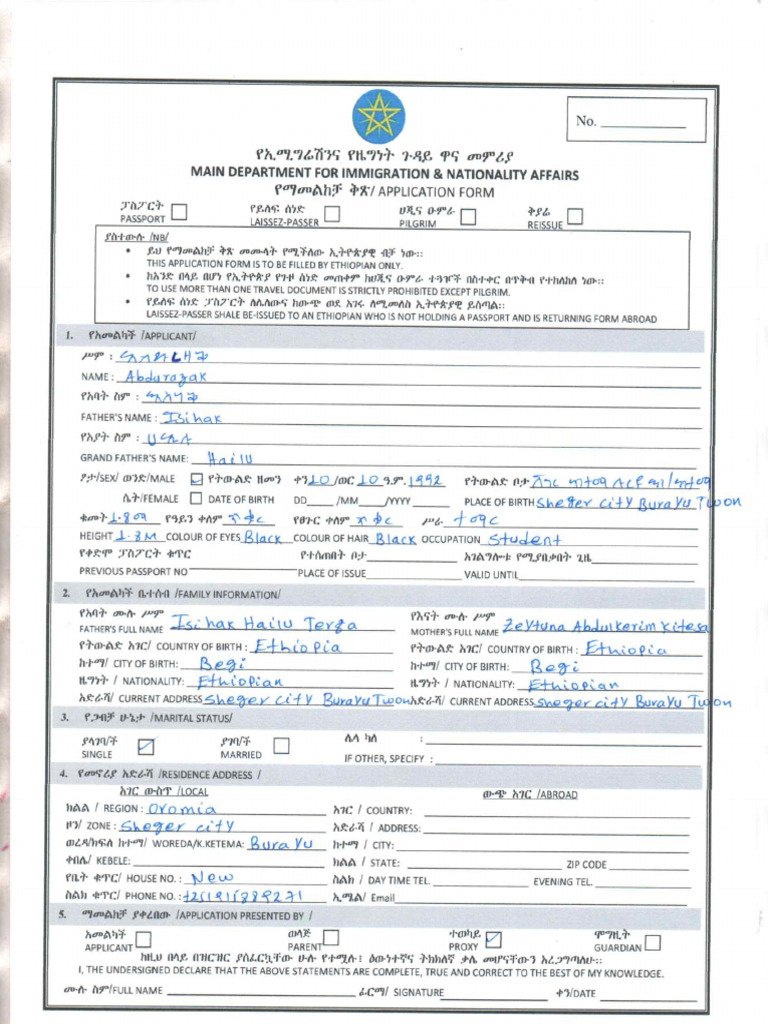 No.
የኢሚግሬሽንና የዜግነት ጉዳይ ዋና መምሪያ
MAIN DEPARTMENT FOR IMMIGRATION & NATIONALITY AFFAIRS
የማመልከቻ ቅጽ/ APPLICATION FORM
ፓስፖርት የይለፍ ሰነድ ሀጂና ዑምራ ቅያሬ
PASSPORT LAISSEZ-PASSER PILGRIM REISSUE
ያስተውሉ /NB/
• ይህ የማመልከቻ ቅጽ መሙላት የሚችለው ኢትዮጵያዊ ብቻ ነው፡፡
THIS APPLICATION FORM IS TO BE FILLED BY ETHIOPIAN ONLY.
• ከአንድ በላይ በሆነ የኢትዮጵያ የጉዞ ሰነድ መጠቀም ከሀጂና ዑምራ ተጓዦች በስተቀር በጥብቅ የተከለከለ ነው፡፡
TO USE MORE THAN ONE TRAVEL DOCUMENT IS STRICTLY PROHIBITED EXCEPT PILGRIM.
• የይለፍ ሰነድ ፓስፖርት ለሌለውና ከውጭ ወደ አገሩ ለሚመለስ ኢትዮጵያዊ ይሰጣል፡፡
LAISSEZ-PASSER SHALL BE-ISSUED TO AN ETHIOPIAN WHO IS NOT HOLDING A PASSPORT AND IS RETURNING FORM ABROAD
1. የአመልካች /APPLICANT/
ሥም :
NAME : Abdurazak
የአባት ስም :
FATHER'S NAME : Isihak
የአያት ስም :
GRAND FATHER'S NAME: Hailu
ፆታ/SEX/ ወንድ/MALE የትውልድ ዘመን ቀን 10 /ወር 10 ዓ.ም. 1992 የትውልድ ቦታ
ሴት/FEMALE DATE OF BIRTH DD /MM /YYYY PLACE OF BIRTH Sheger City Burayu Twon
ቁመት 1.8ሜ የዓይን ቀለም ጥቁር የፀጉር ቀለም ጥቁር ሥራ ተማሪ
HEIGHT 1.8M COLOUR OF EYES Black COLOUR OF HAIR Black OCCUPATION Student
የቀድሞ ፓስፖርት ቁጥር የተሰጠበት ቦታ አገልግሎቱ የሚያበቃበት ጊዜ
PREVIOUS PASSPORT NO PLACE OF ISSUE VALID UNTIL
2. የአመልካች ቤተሰብ /FAMILY INFORMATION/
የአባት ሙሉ ሥም የእናት ሙሉ ሥም
FATHER'S FULL NAME Isihak Hailu Terfa MOTHER'S FULL NAME Zeytuna Abdulkerim Kitesa
የትውልድ አገር/ COUNTRY OF BIRTH : Ethiopia የትውልድ አገር/ COUNTRY OF BIRTH : Ethiopia
ከተማ/ CITY OF BIRTH: Begi ከተማ/ CITY OF BIRTH: Begi
ዜግነት / NATIONALITY: Ethiopian ዜግነት / NATIONALITY: Ethiopian
አድራሻ/ CURRENT ADDRESS Sheger City Burayu Twon አድራሻ/ CURRENT ADDRESS Sheger City Burayu Twon
3. የጋብቻ ሁኔታ /MARITAL STATUS/
ያላገባ/ች ያገባ/ች ሌላ ካለ :
SINGLE MARRIED IF OTHER, SPECIFY :
4. የመኖሪያ አድራሻ /RESIDENCE ADDRESS /
አገር ውስጥ /LOCAL ውጭ አገር /ABROAD
ክልል / REGION : Oromia አገር / COUNTRY:
ዞን/ ZONE : Sheger City አድራሻ / ADDRESS:
ወረዳ/ክፍለ ከተማ/ WOREDA/K.KETEMA: Burayu ከተማ / CITY:
ቀበሌ/ KEBELE: ክልል / STATE: ZIP CODE
የቤት ቁጥር/ HOUSE NO. : New ስልክ / DAY TIME TEL. EVENING TEL.
ስልክ ቁጥር/ PHONE NO. : +251915889271 ኢሜል/ Email
5. ማመልከቻ ያቀረበው /APPLICATION PRESENTED BY /
አመልካች ወላጅ ተወካይ ሞግዚት
APPLICANT PARENT PROXY GUARDIAN
ከዚህ በላይ በዝርዝር ያሰፈርኳቸው ሁሉ የተሟሉ፤ ዕውነተኛና ትክክለኛ ቃሌ መሆናቸውን አረጋግጣለሁ፡፡
I, THE UNDERSIGNED DECLARE THAT THE ABOVE STATEMENTS ARE COMPLETE, TRUE AND CORRECT TO THE BEST OF MY KNOWLEDGE.
ሙሉ ስም/FULL NAME ፊርማ/ SIGNATURE ቀን/DATE